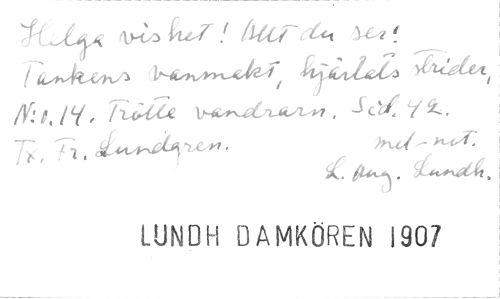 Helga vishet! Allt du ser!
Tankens vanmakt, hjärtats strider,
N:o. 14. Trötte vandrarn. Sid. 42.
Tx. Fr. Lundgren. mel-not.
L. Aug. Lundh.
LUNDH DAMKÖREN 1907